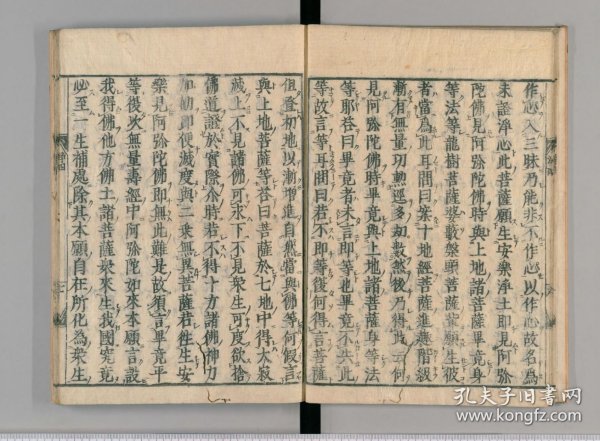 作心入三昧乃能非不作心以作心故名為
未證淨心此菩薩願生安樂淨土即見阿弥
陀佛見阿弥陀佛時與上地諸菩薩畢竟身
等法等龍樹菩薩婆數槃頭菩薩輩願生彼
者當為此耳問曰案十地經菩薩進趣階級
漸有無量功勲逕多劫數然後乃得此云何
見阿弥陀佛時畢竟與上地諸菩薩身等法
等耶荅曰畢竟者未言即等也畢竟不失此
等故言等耳問曰若不即等復何得言菩薩
但登初地以漸増進自然當與佛等何假言
與上地菩薩等荅曰菩薩於七地中得大寂
滅上不見諸佛可求下不見衆生可度欲捨
佛道證於實際尒時若不得十方諸佛神力
加勧即便滅度與二乗無異菩薩若徃生安
樂見阿弥陀佛即無此難是故須言畢竟平
等復次無量壽經中阿弥陀如來本願言設
我得佛他方佛土諸菩薩衆來生我國究竟
必至一生補處除其本願自在所化為衆生
孔夫子旧书网
www.kongfz.com